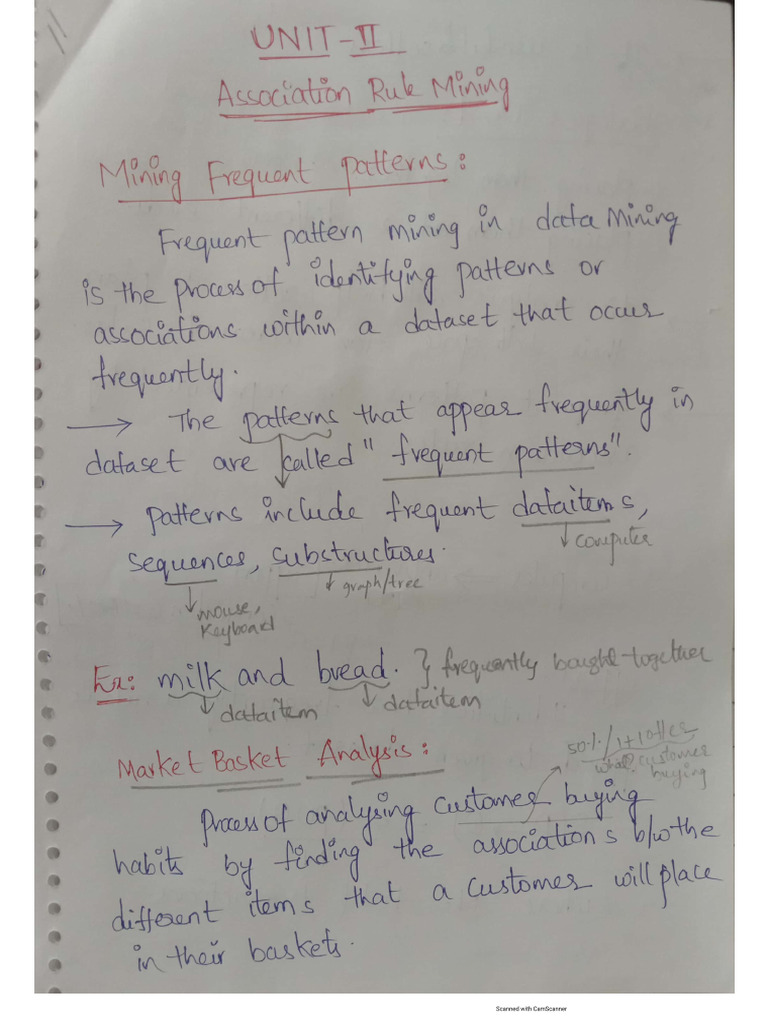 UNIT-II
Association Rule Mining
Mining Frequent patterns:
Frequent pattern mining in data Mining
is the process of identifying patterns or
associations within a dataset that occur
frequently.
→ The patterns that appear frequently in
dataset are called "frequent patterns".
→ patterns include frequent dataitems,
computer
sequences, substructures.
graph/tree
mouse,
Keyboard
Ex: milk and bread. } frequently bought together
dataitem dataitem
50%/1+1 offer
Market Basket Analysis:
customer
buying
Process of analysing customer buying
habits by finding the associations b/w the
different items that a customer will place
in their baskets.
Scanned with CamScanner